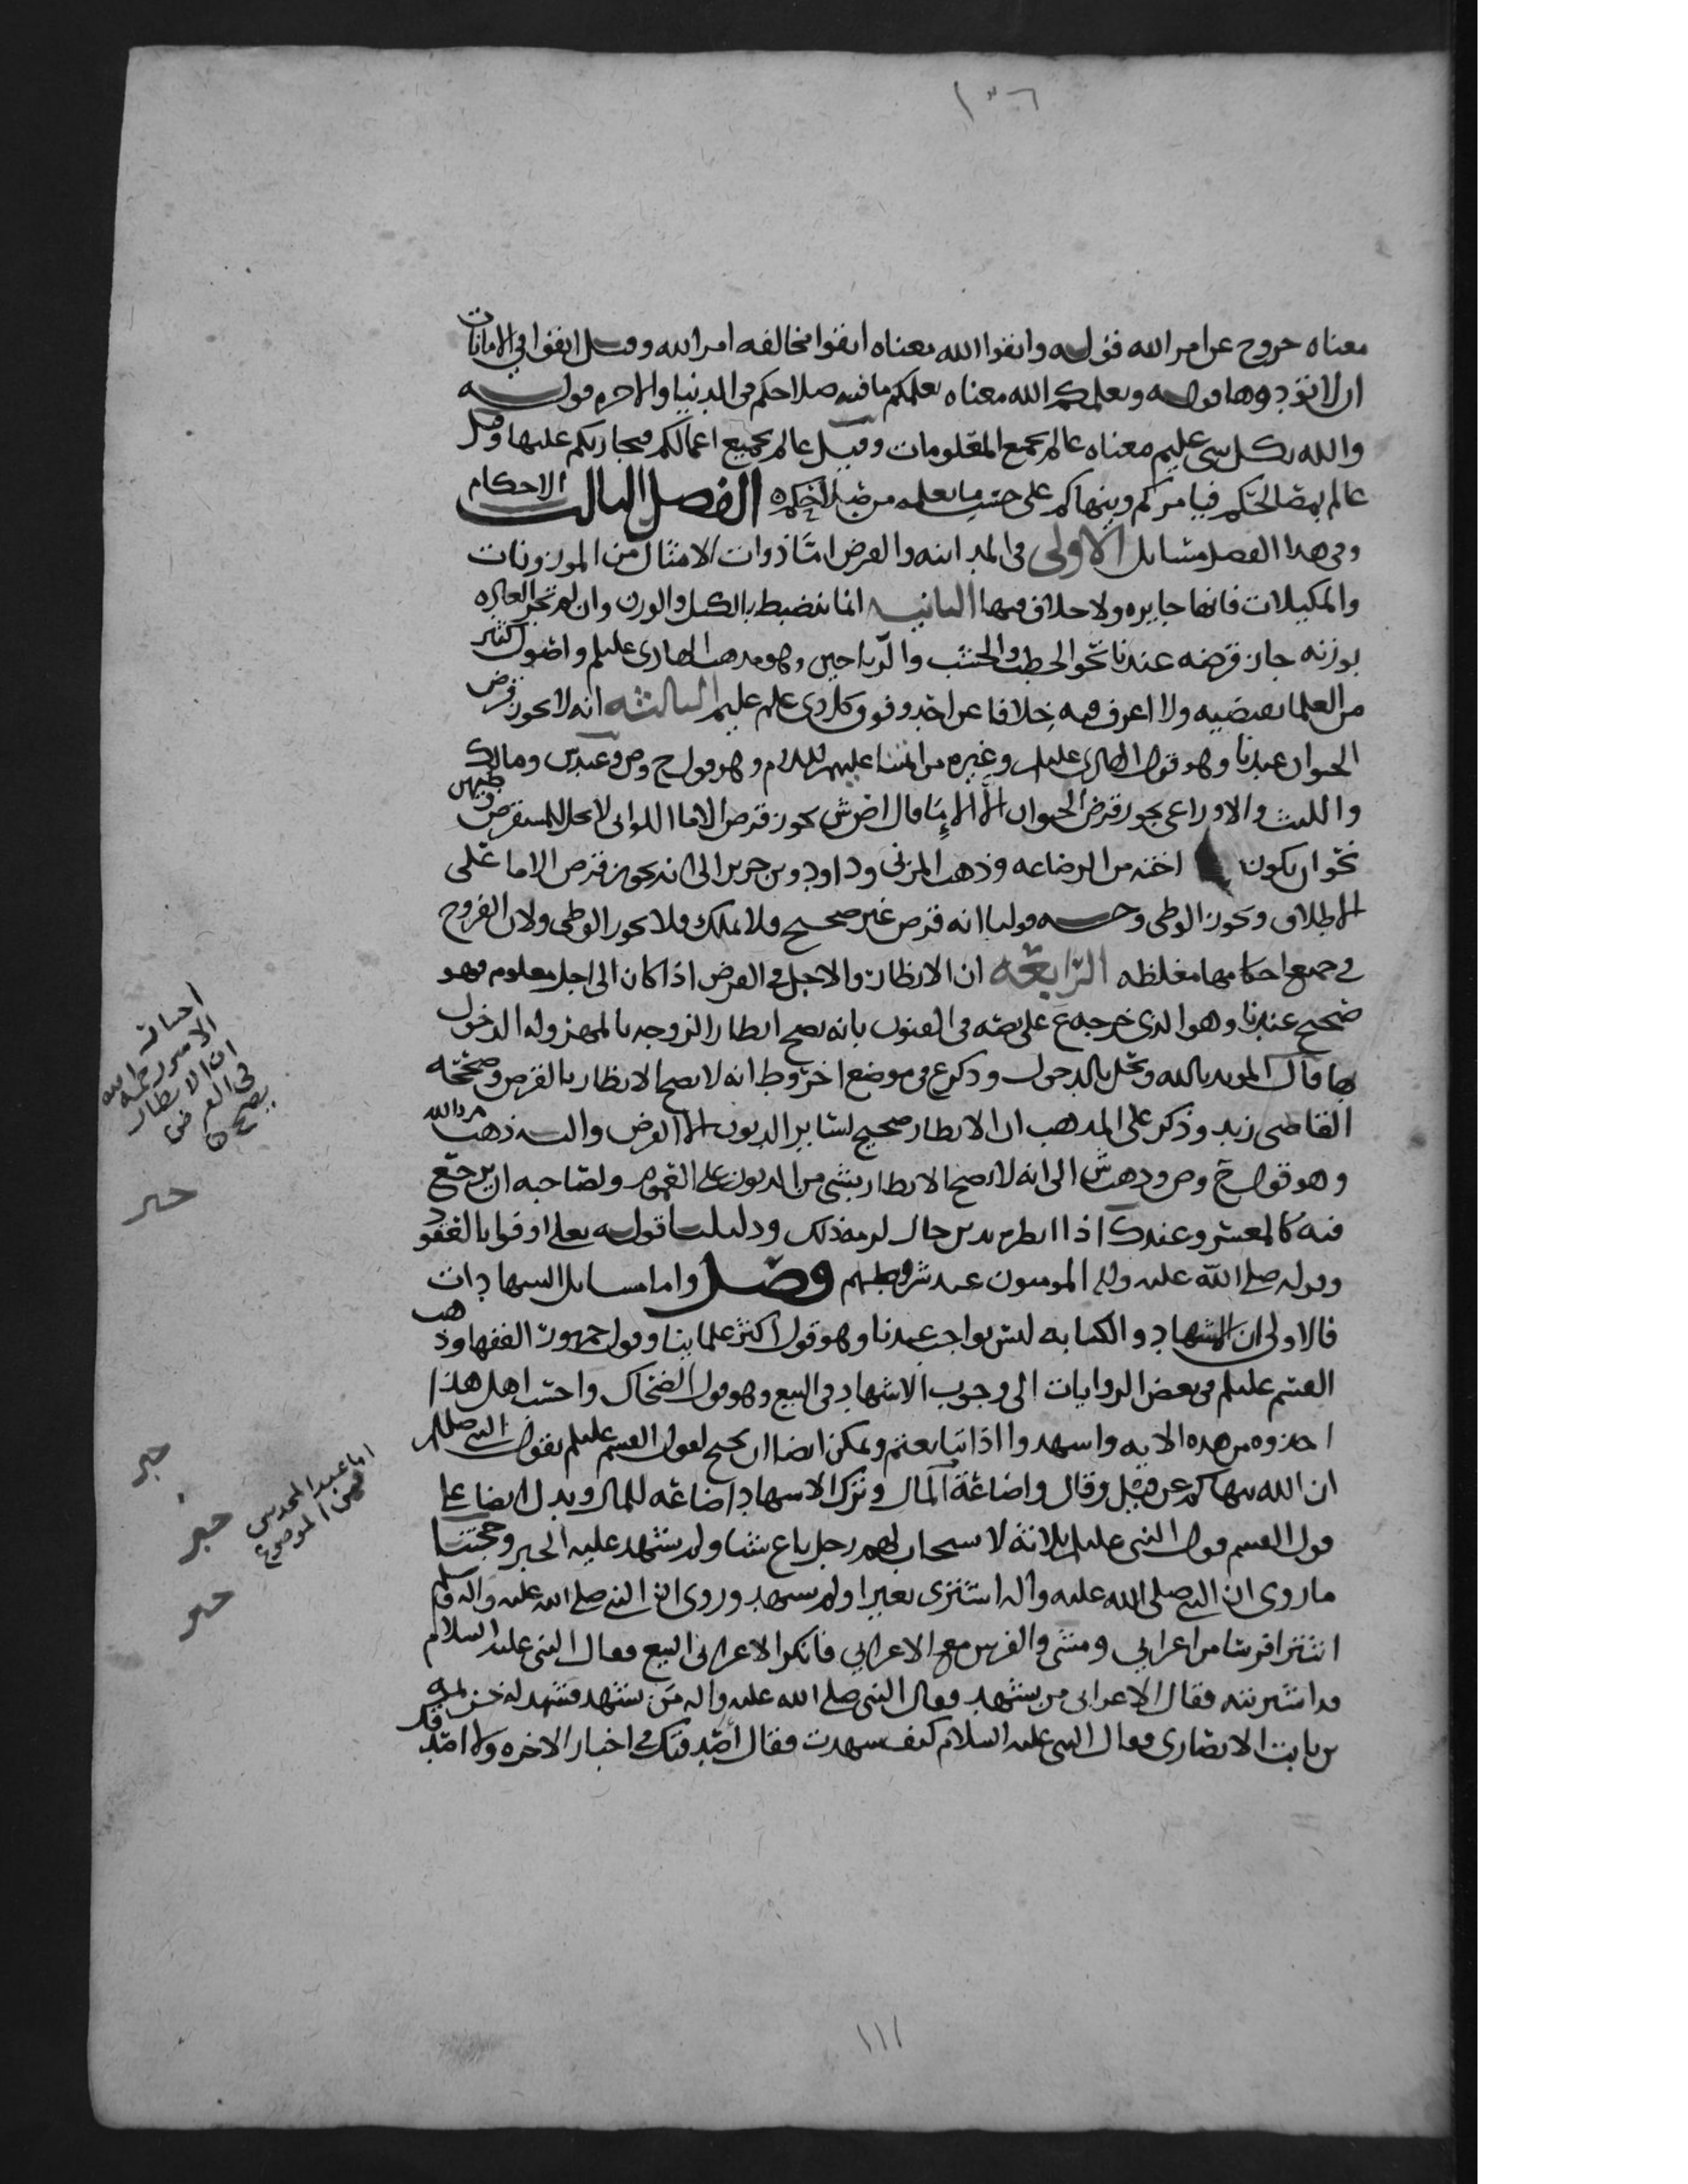 ١٣٦
معناه خروج عن امر الله قوله واتقوا الله معناه اتقوا مخالفه امر الله وقيل اتقوا في الامانات
ان لا تؤدوها قوله ويعلمكم الله معناه يعلمكم ما فيه صلاحكم في الدنيا والاخره قوله
والله بكل شي عليم معناه عالم بجميع المعلومات وقيل عالم بجميع اعمالكم فيجازيكم عليها وقيل
عالم بمصالحكم فيامركم وينهاكم على حسب ما يعلمه من الفصل الثالث الاحكام
وفي هذا الفصل مسايل الاولى في المداينه والقرض اما ذوات الامثال من الموزونات
والمكيلات فانها جايزه ولا خلاف فيها الثانيه انما ينضبط بالكيل والوزن وان لم تجر العاده
بوزنه جاز قرضه عندنا نحو الحطب والخشب والرياحين وهو مذهب الهادي عليلم واصول كثير
من العلما يقتضيه ولا اعرف فيه خلافا عن احد وكل ذي علم عليم الثالثه انه لا يجوز قرض
الحيوان عندنا وهو قول الهادي عليلم وغيره من ائمتنا عليهم السلام وهو قول ح وص وعند س ومالك
والليث والاوزاعي يجوز قرض الحيوان الا الإمَا قال اض ش يجوز قرض الاما اللواتي لا يحل للمستقرض وطيهن
نحو ان يكون اخته من الرضاعه وذهب المزني وداود وبن جرير الى انه يجوز قرض الاما على
الاطلاق ويجوز الوطي وجه قولنا انه قرض غير صحيح فلا يملك فلا يجوز الوطي ولان الفروج
في جميع احكامها مغلظه الرابعه ان الانظار والاجل في القرض اذا كان الى اجل معلوم فهو
صحيح عندنا وهو الذي خرجه ع على نصه في الفنون بانه يصح انظار الزوجه بالمهر وله الدخول
بها قال المويد بالله وتحل بالدخول وذكر ع في موضع اخر وط انه لا يصح الانظار بالقرض وصححه
القاضي زيد وذكر على المذهب ان الانظار صحيح لساير الديون الا القرض واليه ذهب م بالله
وهو قول ح وص وذهب ش الى انه لا يصح الانظار بشي من الديون على العموم ولصاحبه ان يرجع
فيه كالمعسر وعند ك اذا انظره بدين حال لزمه ذلك ودليلنا قوله تعالى اوفوا بالعقود
وقوله صلى الله عليه واله المومنون عند شروطهم فصل واما مسايل الشهادات
فالاولى ان الشهاد والكتابه ليس بواجب عندنا وهو قول اكثر علماينا وقول جمهور الفقها وذهب
القسم عليلم في بعض الروايات الى وجوب الاشهاد في البيع وهو قول الضحاك واحسب اهل هذا
اخذوه من هذه الايه واشهدوا اذا تبايعتم ويمكن ايضا ان يحتج لقول القسم عليلم بقول النبي صلعم
ان الله ينهاكم عن قيل وقال واضاعة المال وترك الاشهاد اضاعه للمال ويدل ايضا على
قول القسم قول النبي عليلم ثلاثه لا يستجاب لهم رجل باع شيا ولم يشهد عليه الخبر وحجتنا
ما روي ان النبي صلى الله عليه واله اشترى بعيرا ولم يشهد وروي ان النبي صلى الله عليه واله وسلم
اشترا فرسا من اعرابي ومشى والفرس مع الاعرابي فانكر الاعرابي البيع فقال النبي عليه السلام
قد اشتريته فقال الاعرابي من يشهد فقال النبي صلى الله عليه واله من يشهد فشهد له خزيمه
بن ثابت الانصاري فقال النبي عليه السلام كيف شهدت فقال اصدقك في اخبار الاخره ولا اصدقك
الامير رحمه الله
ان الانظار
في القرض
يصح
خبر
خبر
خبر
خبر
١١١